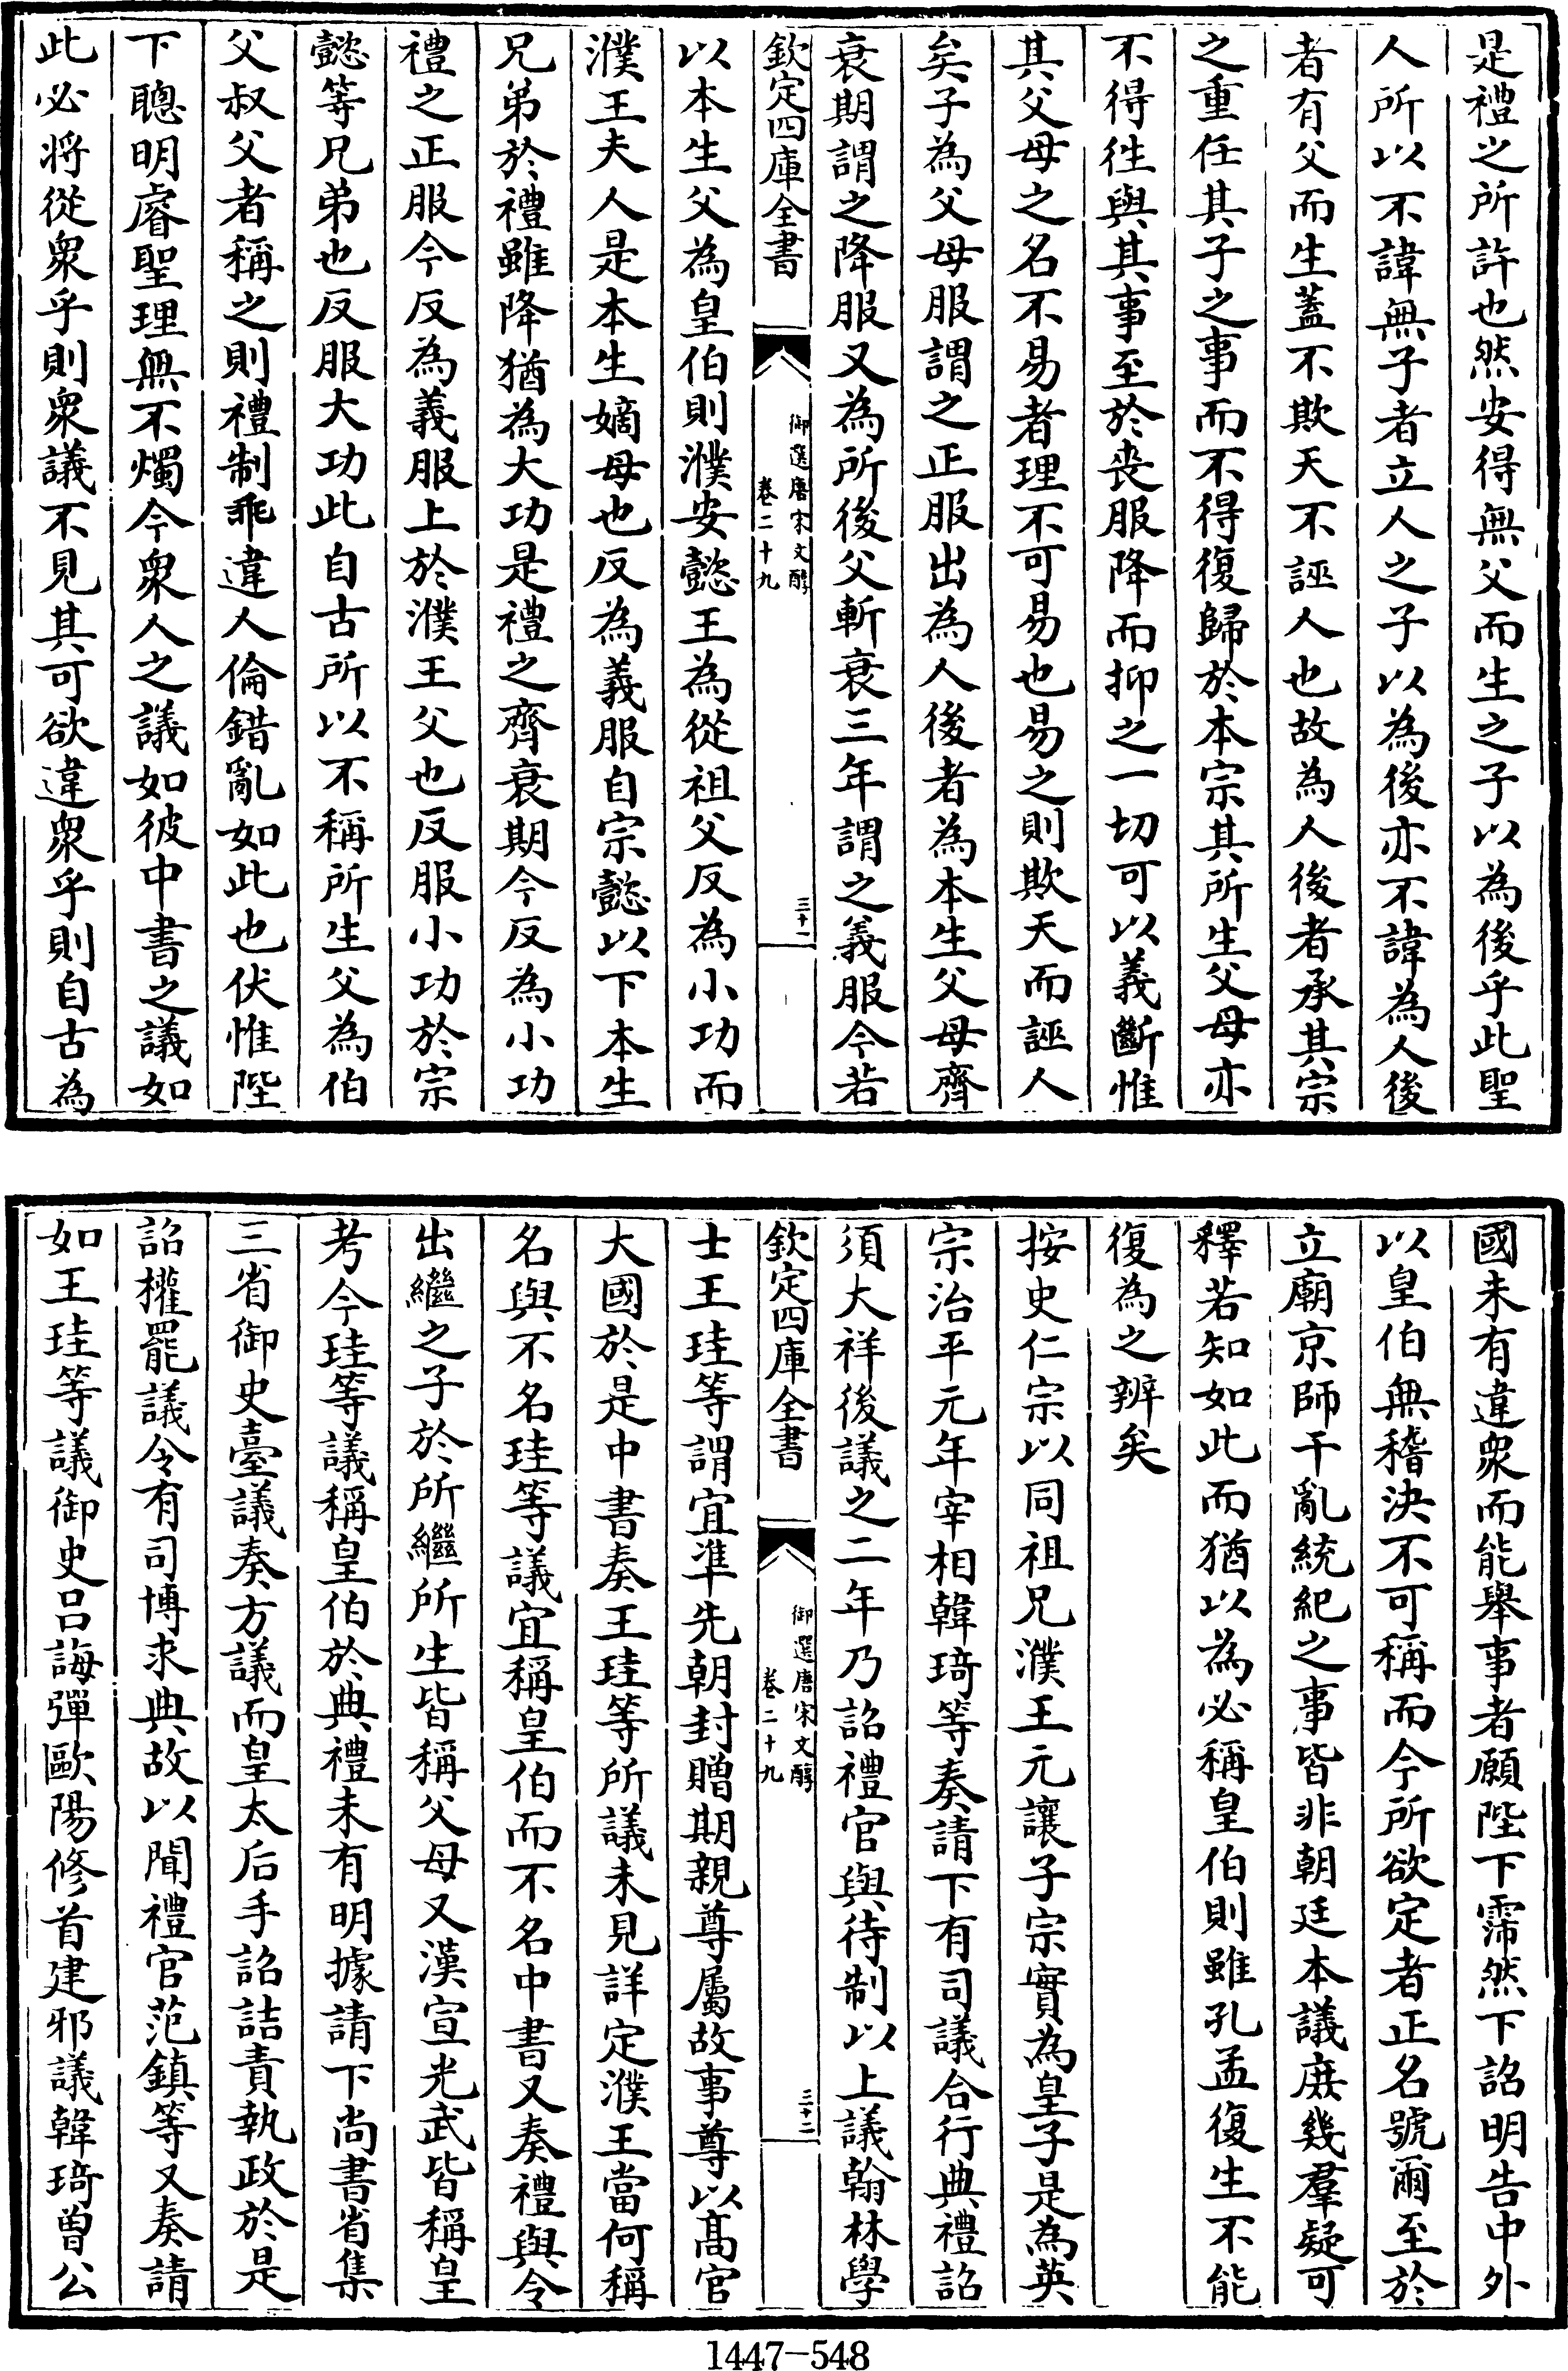 是禮之所許也然安得無父而生之子以為後乎此聖
人所以不諱無子者立人之子以為後亦不諱為人後
者有父而生蓋不欺天不誣人也故為人後者承其宗
之重任其子之事而不得復歸於本宗其所生父母亦
不得徃與其事至於喪服降而抑之一切可以義斷惟
其父母之名不易者理不可易也易之則欺天而誣人
矣子為父母服謂之正服出為人後者為本生父母齊
衰期謂之降服又為所後父斬衰三年謂之義服今若
欽定四庫全書
御選唐宋文醇
卷二十九
三十一
以本生父為皇伯則濮安懿王為從祖父反為小功而
濮王夫人是本生嫡母也反為義服自宗懿以下本生
兄弟於禮雖降猶為大功是禮之齊衰期今反為小功
禮之正服今反為義服上於濮王父也反服小功於宗
懿等兄弟也反服大功此自古所以不稱所生父為伯
父叔父者稱之則禮制乖違人倫錯亂如此也伏惟陛
下聰明睿聖理無不燭今衆人之議如彼中書之議如
此必將從衆乎則衆議不見其可欲違衆乎則自古為
國未有違衆而能舉事者願陛下霈然下詔明告中外
以皇伯無稽決不可稱而今所欲定者正名號爾至於
立廟京師干亂統紀之事皆非朝廷本議庶幾羣疑可
釋若知如此而猶以為必稱皇伯則雖孔孟復生不能
復為之辨矣
按史仁宗以同祖兄濮王元讓子宗實為皇子是為英
宗治平元年宰相韓琦等奏請下有司議合行典禮詔
須大祥後議之二年乃詔禮官與待制以上議翰林學
欽定四庫全書
御選唐宋文醇
卷二十九
三十二
士王珪等謂宜準先朝封贈期親尊屬故事尊以高官
大國於是中書奏王珪等所議未見詳定濮王當何稱
名與不名珪等議宜稱皇伯而不名中書又奏禮與令
出繼之子於所繼所生皆稱父母又漢宣光武皆稱皇
考今珪等議稱皇伯於典禮未有明據請下尚書省集
三省御史臺議奏方議而皇太后手詔詰責執政於是
詔權罷議令有司博求典故以聞禮官范鎮等又奏請
如王珪等議御史呂誨彈歐陽修首建邪議韓琦曾公
1447-548